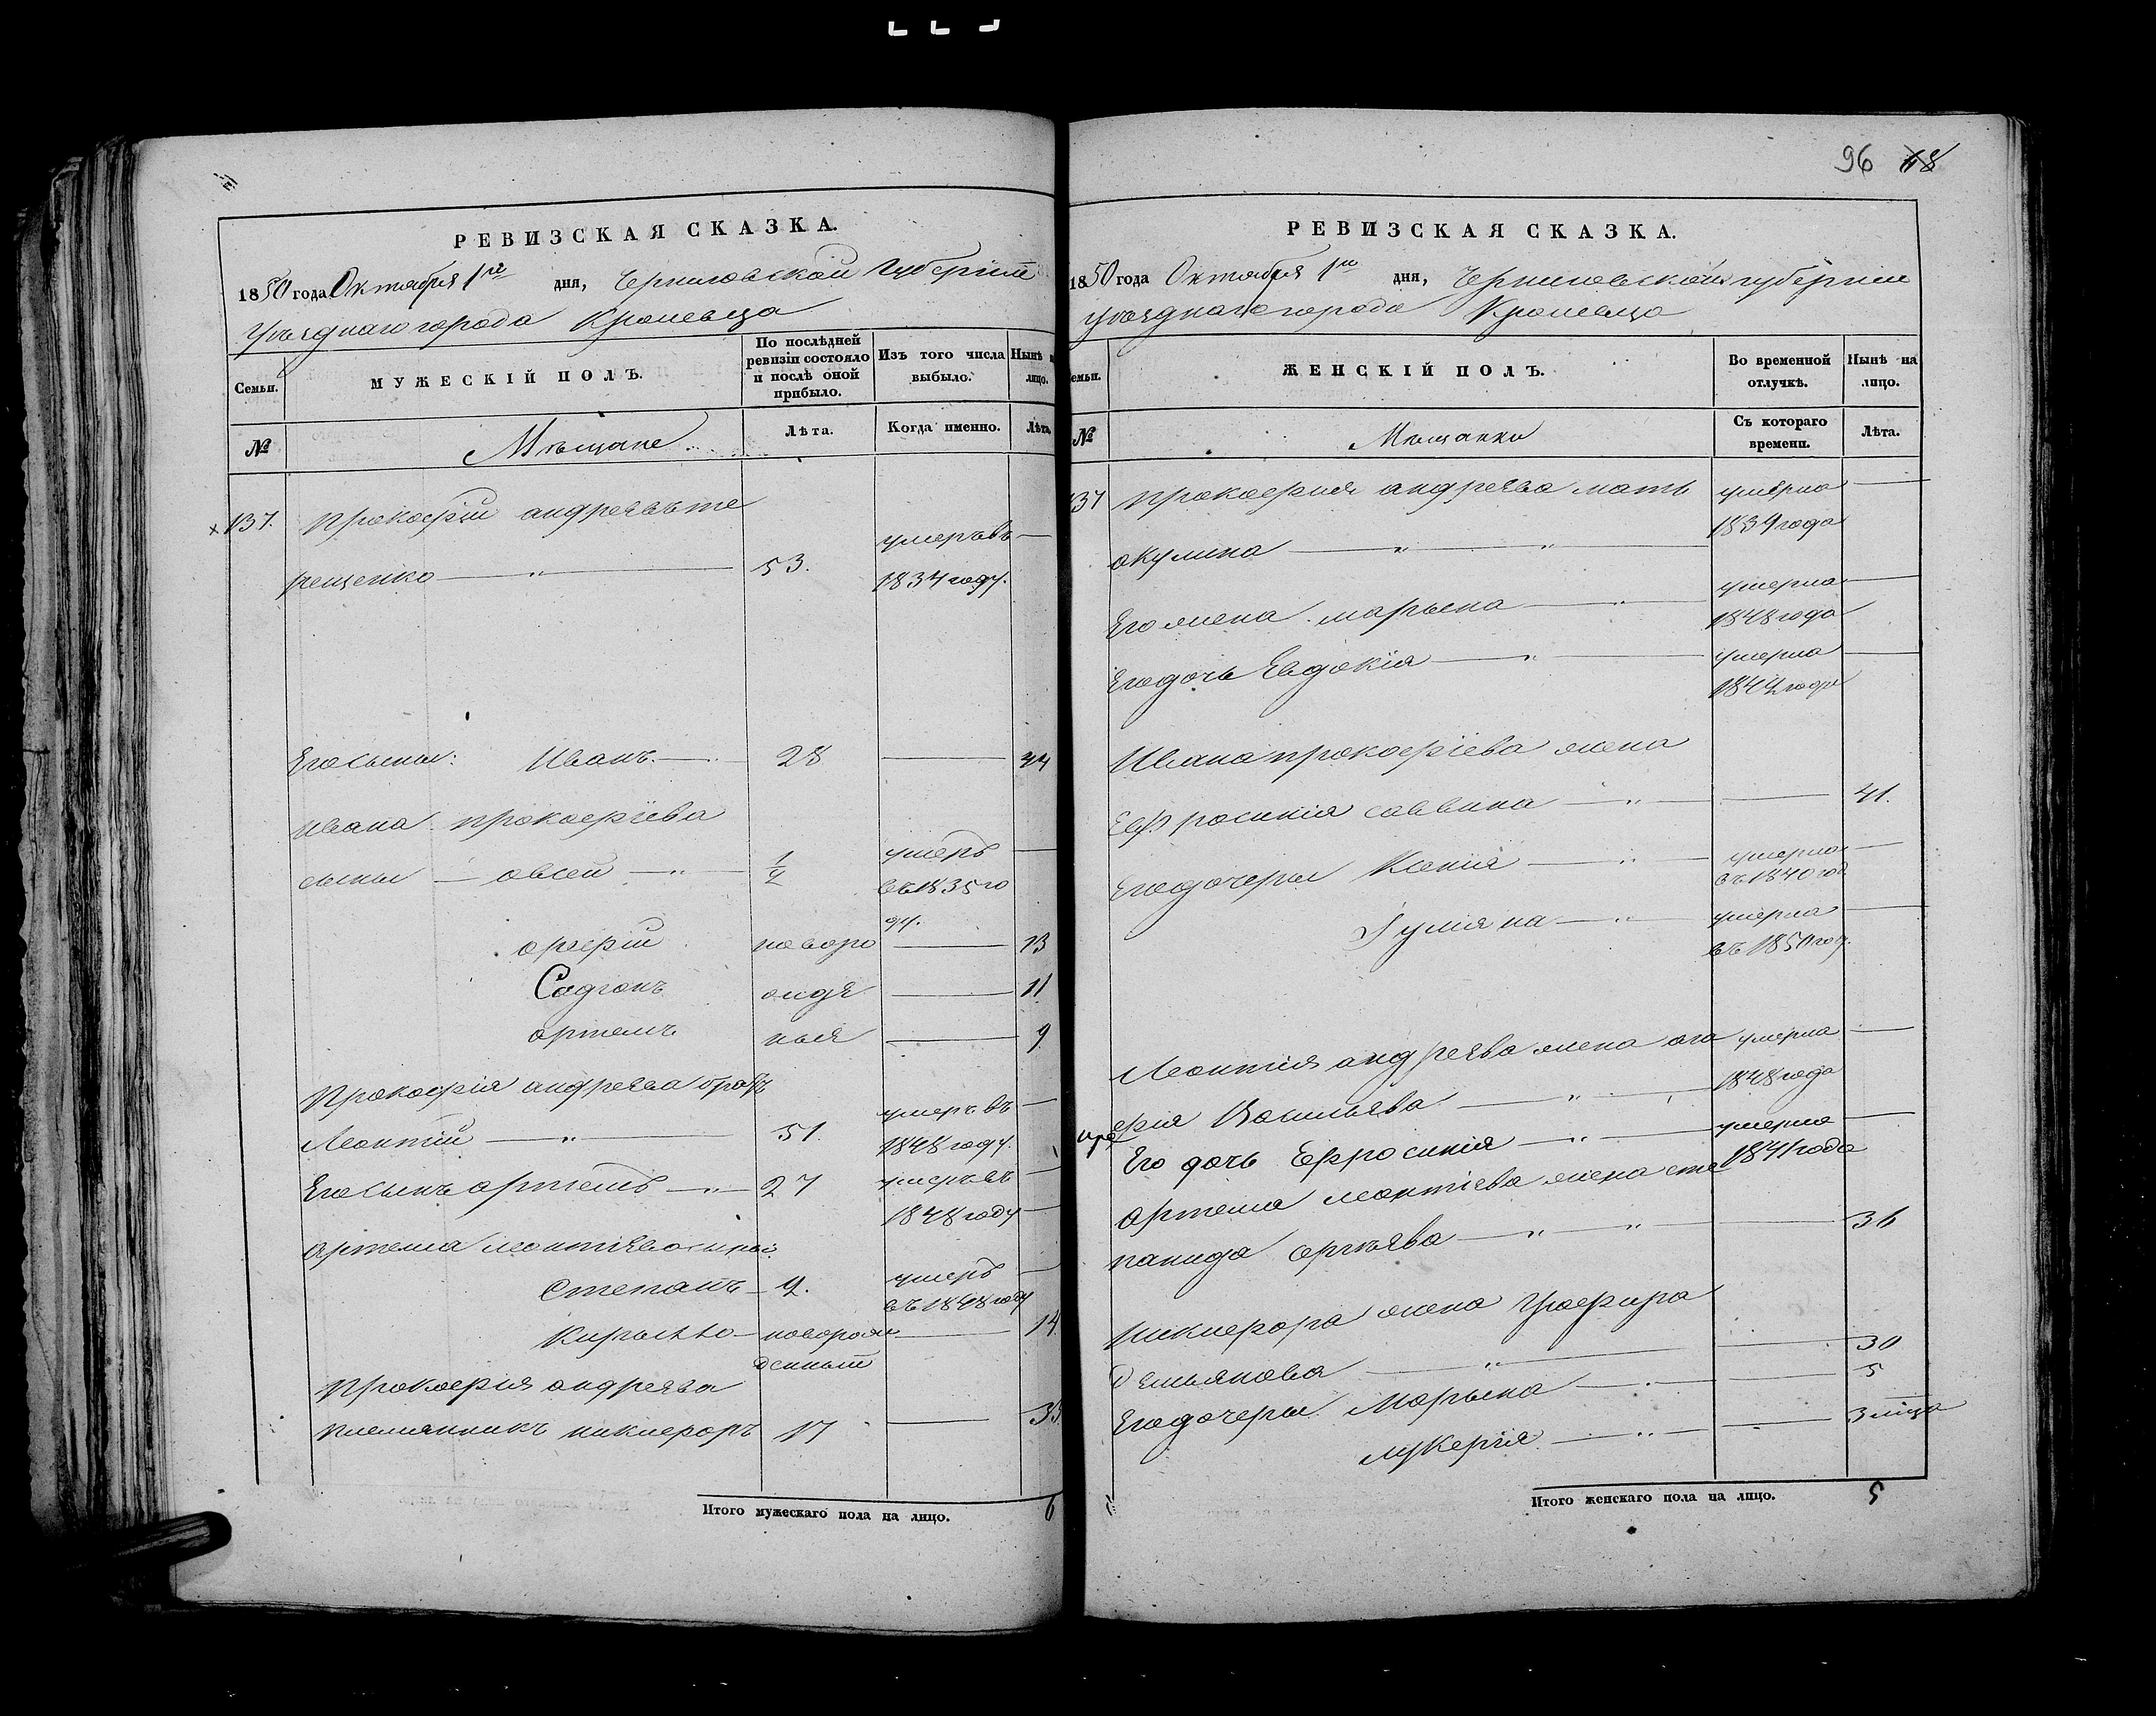 РЕВИЗСКАЯ СКАЗКА.
1850 года Октября 1го дня, Черниговской Губернии
уѣзднаго города Кролевца
Семьи.
МУЖЕСКІЙ ПОЛЪ.
По послѣдней
ревизіи состояло
и послѣ оной
прибыло.
Изъ того числа
выбыло.
Нынѣ н
лицо.
№
Мѣщане
Лѣта.
Когда именно.
Лѣта
137. прокофій андреевъ те
рещенко 53. умеръ въ
1834 году.
Его сыны: Иванъ 28 44
ивана прокофіева
сыны овсей 1/2 умеръ
въ 1835 го
ду.
сергій новоро 13
Садгонъ ожде 11
артемъ ные 9
Прокофія андреева братъ
Леонтій 51. умеръ въ
1848 году.
Его сынъ артемъ 27 умеръ въ
1848 году
артема леонтіева сыны
Степанъ 9. умеръ
въ 1848 году
Кирылло новорож 14
денный
Прокофія андреева
племянникъ никифоръ 17 33
Итого мужескаго пола на лицо. 6
96 48
РЕВИЗСКАЯ СКАЗКА.
1850 года Октября 1го дня, Черниговской губерніи
уѣзднаго города Кролевца
емьи.
ЖЕНСКІЙ ПОЛЪ.
Во временной
отлучкѣ.
Нынѣ на
лицо.
№
Мѣщанки
Съ котораго
времени.
Лѣта.
137 прокофия андреева мать умерла
1834 года
окулина
Его жена марьена умерла
1848 года
Его дочь Евдокія умерла
1844 года
Ивана прокофіева жена
Евфросинія саввина 41.
Его дочеры Ксенія умерла
въ 1840 год
Гуляна умерла
въ 1850 год.
Леонтія андреева жена ага умерла
1848 года
фія Васильева
Его дочь Ефросинія умерла
1841 года
артема леонтіева жена сте
панида сергѣева 36
Никифора жена Глафира
Демьянова 30
Его дочеры Марьена 5
лукерія 3 мѣца
Итого женскаго пола на лицо. 5